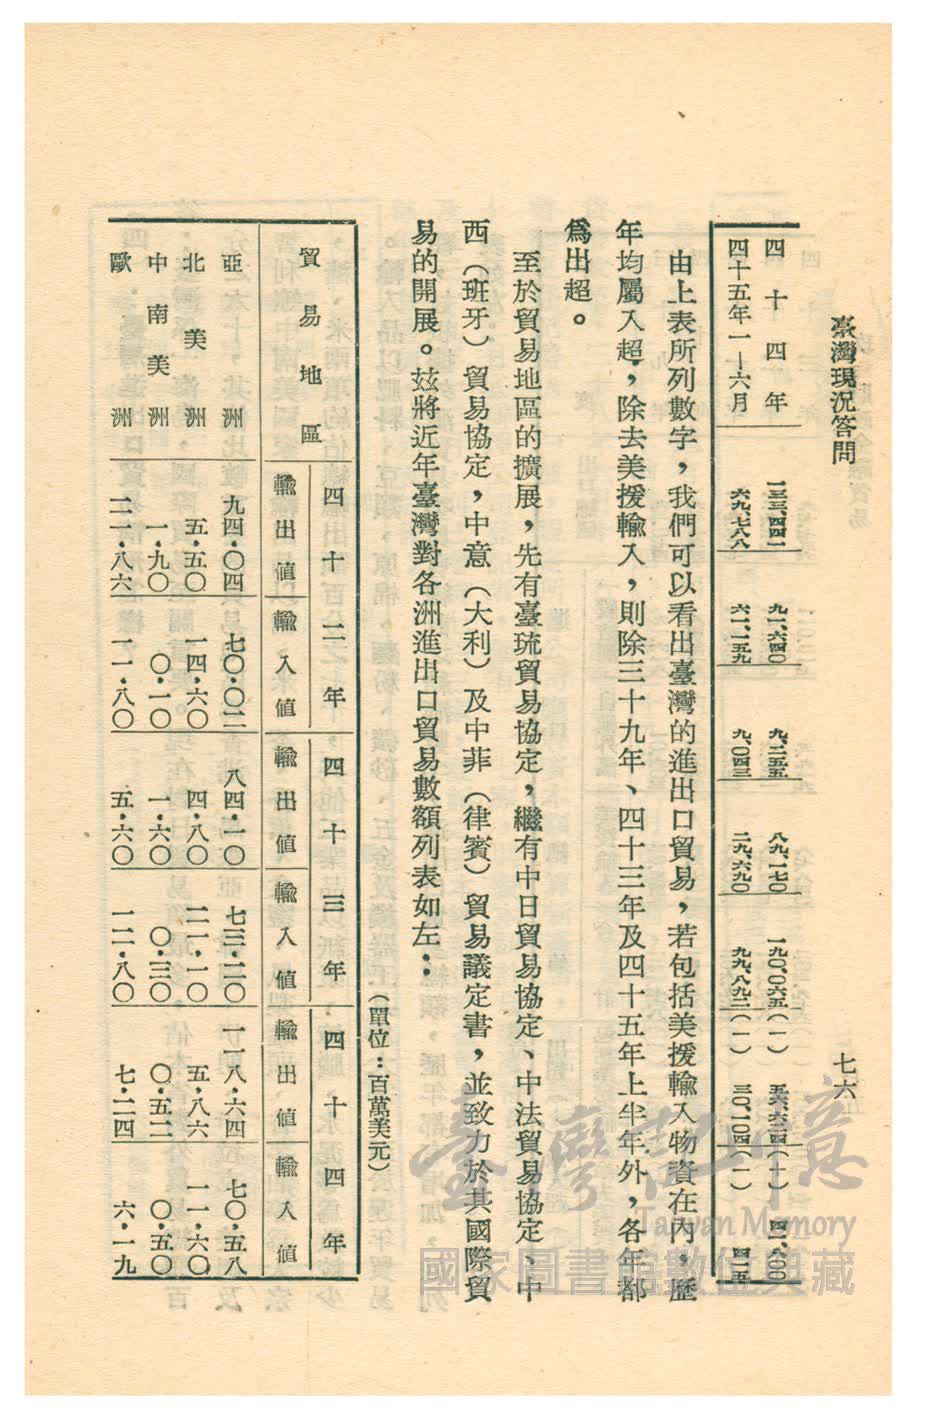 臺灣現況答問
七六
四十四年 一三三、四四一 九一、六四〇 九、二五五 八九、一七〇 一九〇、〇六五(一) 五六、六二四(十) 四一、八〇〇
四十五年一—六月 六九、七八八 六一、一五九 九、〇四三 二九、六九〇 九九、八九二(一) 三〇、一〇四(一) 四一五
由上表所列數字，我們可以看出臺灣的進出口貿易，若包括美援輸入物資在內，歷
年均屬入超，除去美援輸入，則除三十九年、四十三年及四十五年上半年外，各年都
爲出超。
至於貿易地區的擴展，先有臺琉貿易協定，繼有中日貿易協定、中法貿易協定、中
西（班牙）貿易協定，中意（大利）及中菲（律賓）貿易議定書，並致力於其國際貿
易的開展。茲將近年臺灣對各洲進出口貿易數額列表如左：
（單位：百萬美元）
貿易地區 四十二年 四十三年 四十四年
輸出值 輸入值 輸出值 輸入值 輸出值 輸入值
亞洲 九四·〇四 七〇·〇二 八四·一〇 七三·二〇 一一八·六四 七〇·五八
北美洲 五·五〇 一四·六〇 四·八〇 二一·一〇 五·八六 一一·六〇
中南美洲 一·九〇 〇·一〇 一·六〇 〇·三〇 〇·五二 〇·五〇
歐洲 二一·八六 一一·八〇 五·六〇 一二·八〇 七·二四 六·一九
臺灣記憶
Taiwan Memory
國家圖書館數位典藏